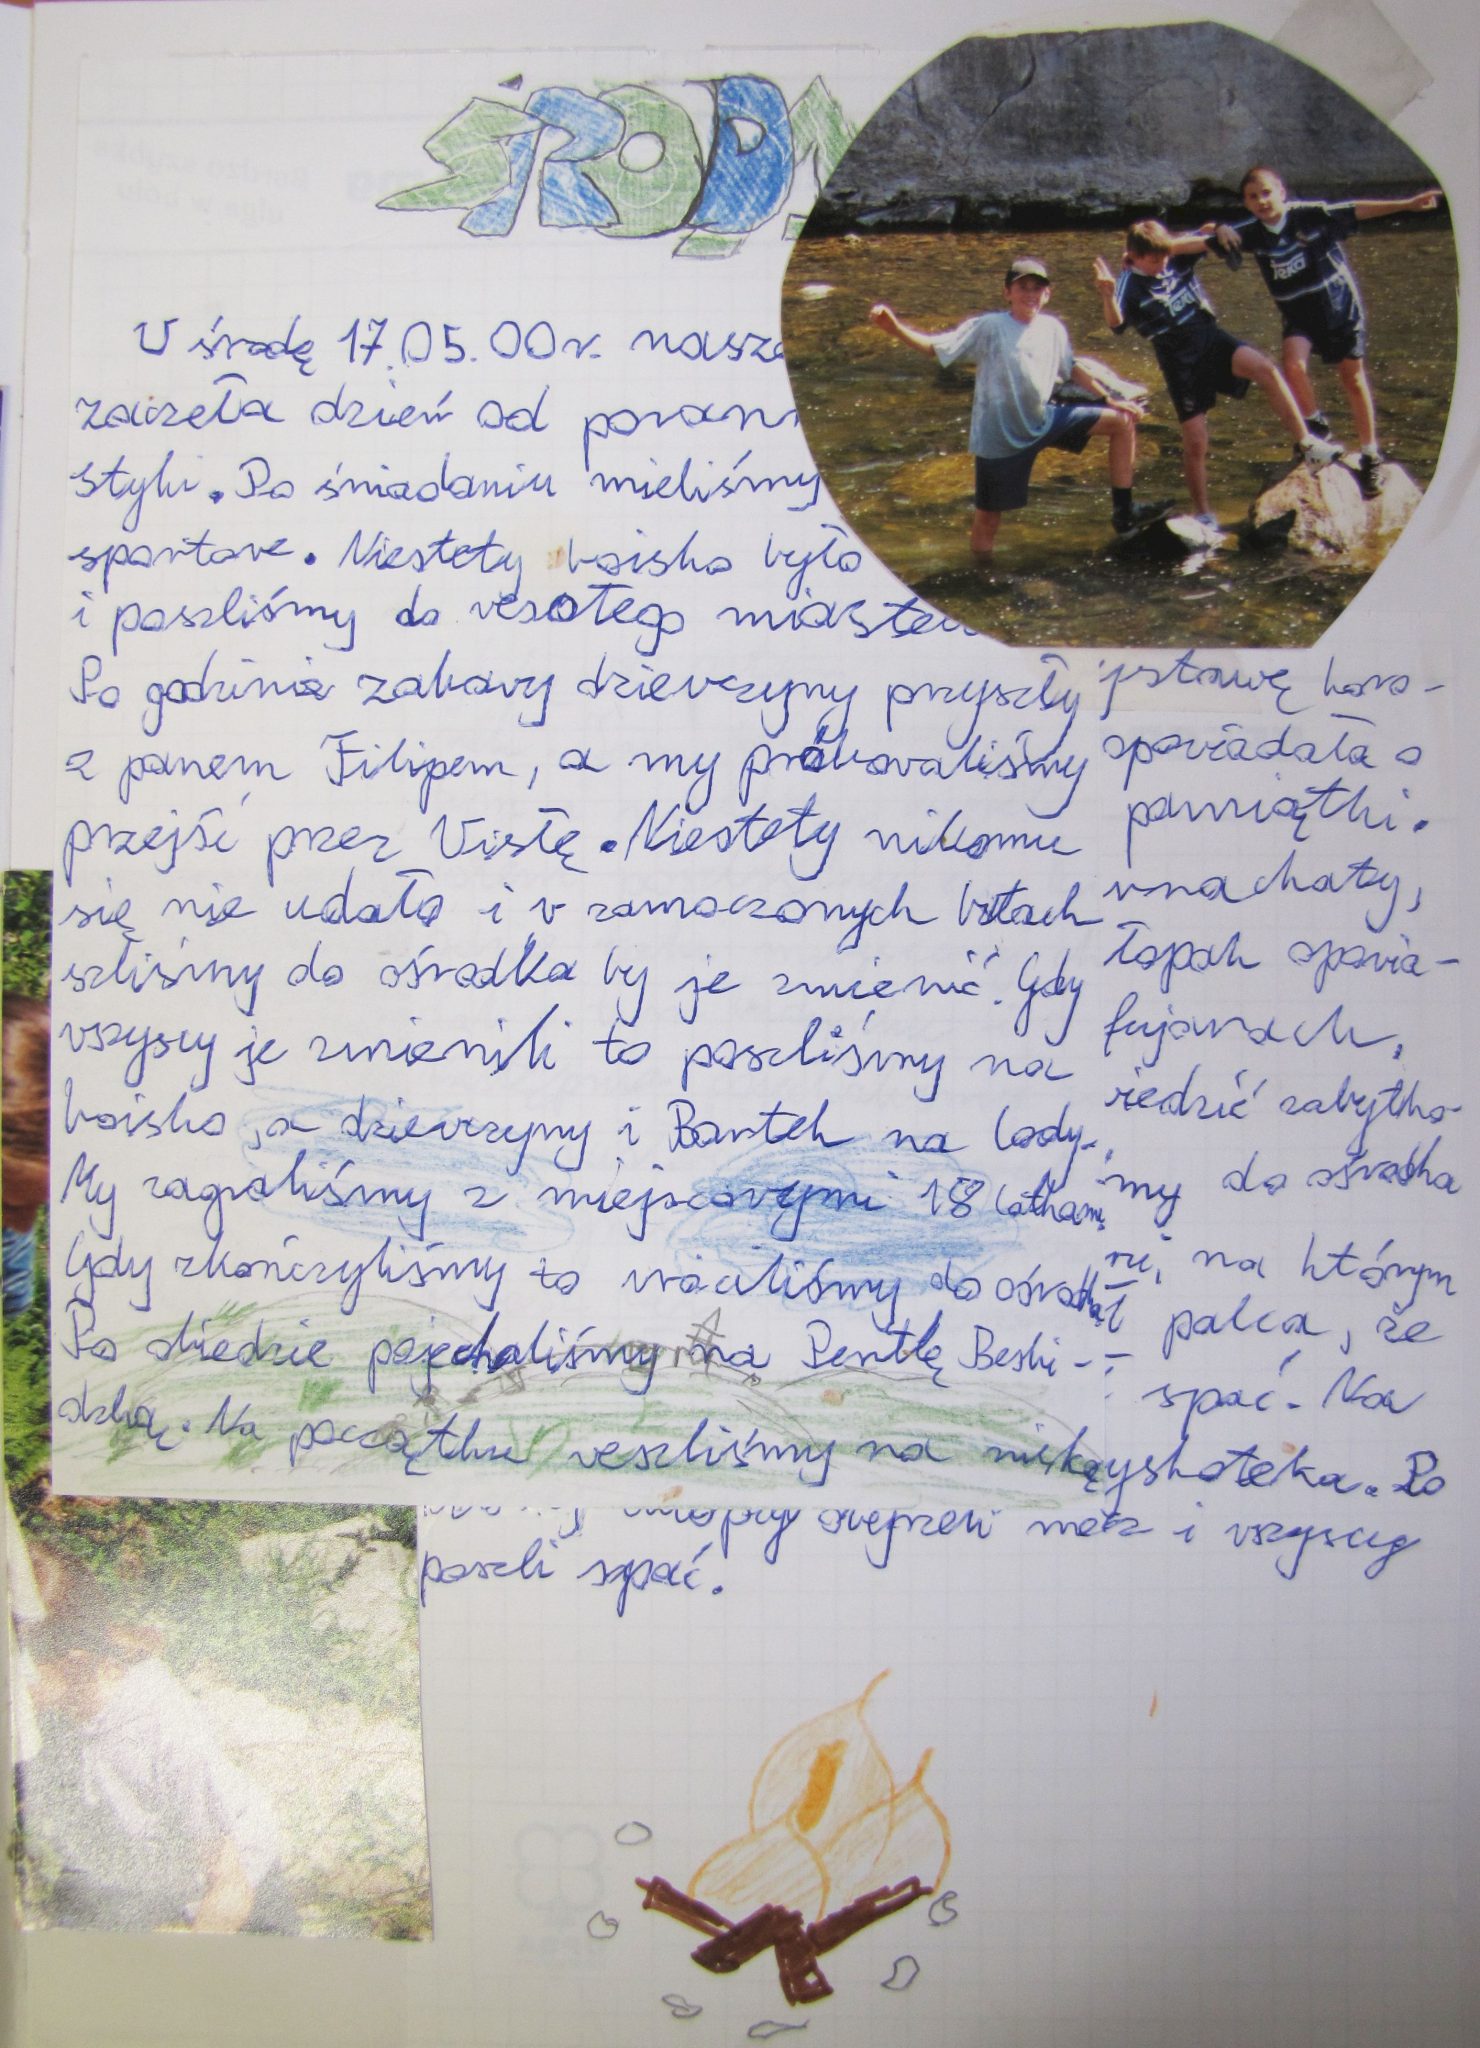 ŚRODA
W środę 17.05.00r. nasza
zaczęła dzień od porann
styki. Po śniadaniu mieliśmy
sportowe. Niestety boisko było
i poszliśmy do wesołego miastecz
Po godzinie zabawy dziewczyny przyszły
z panem Filipem, a my próbowaliśmy
przejść przez Wisłę. Niestety nikomu
się nie udało i w zamoczonych butach
szliśmy do ośrodka by je zmienić. Gdy
wszyscy je zmienili to poszliśmy na
boisko, a dziewczyny i Bartek na lody.
My zagraliśmy z miejscowymi 18 latkami
Gdy zkończyliśmy to wróciliśmy do ośrodka
Po obiedzie pojechaliśmy na Pentlę Beski-
dzką. Na początku weszliśmy na niską
ystawę koro-
opowiadała o
pamiątki.
w nachaty,
łopak opowia-
fujarach,
iedzić zabytko-
my do ośrodka
rei, na którym
palca, że
spać. Na
yskoteka. Po
mecz i wszyscy
poszli spać.
TEKA
TEKA